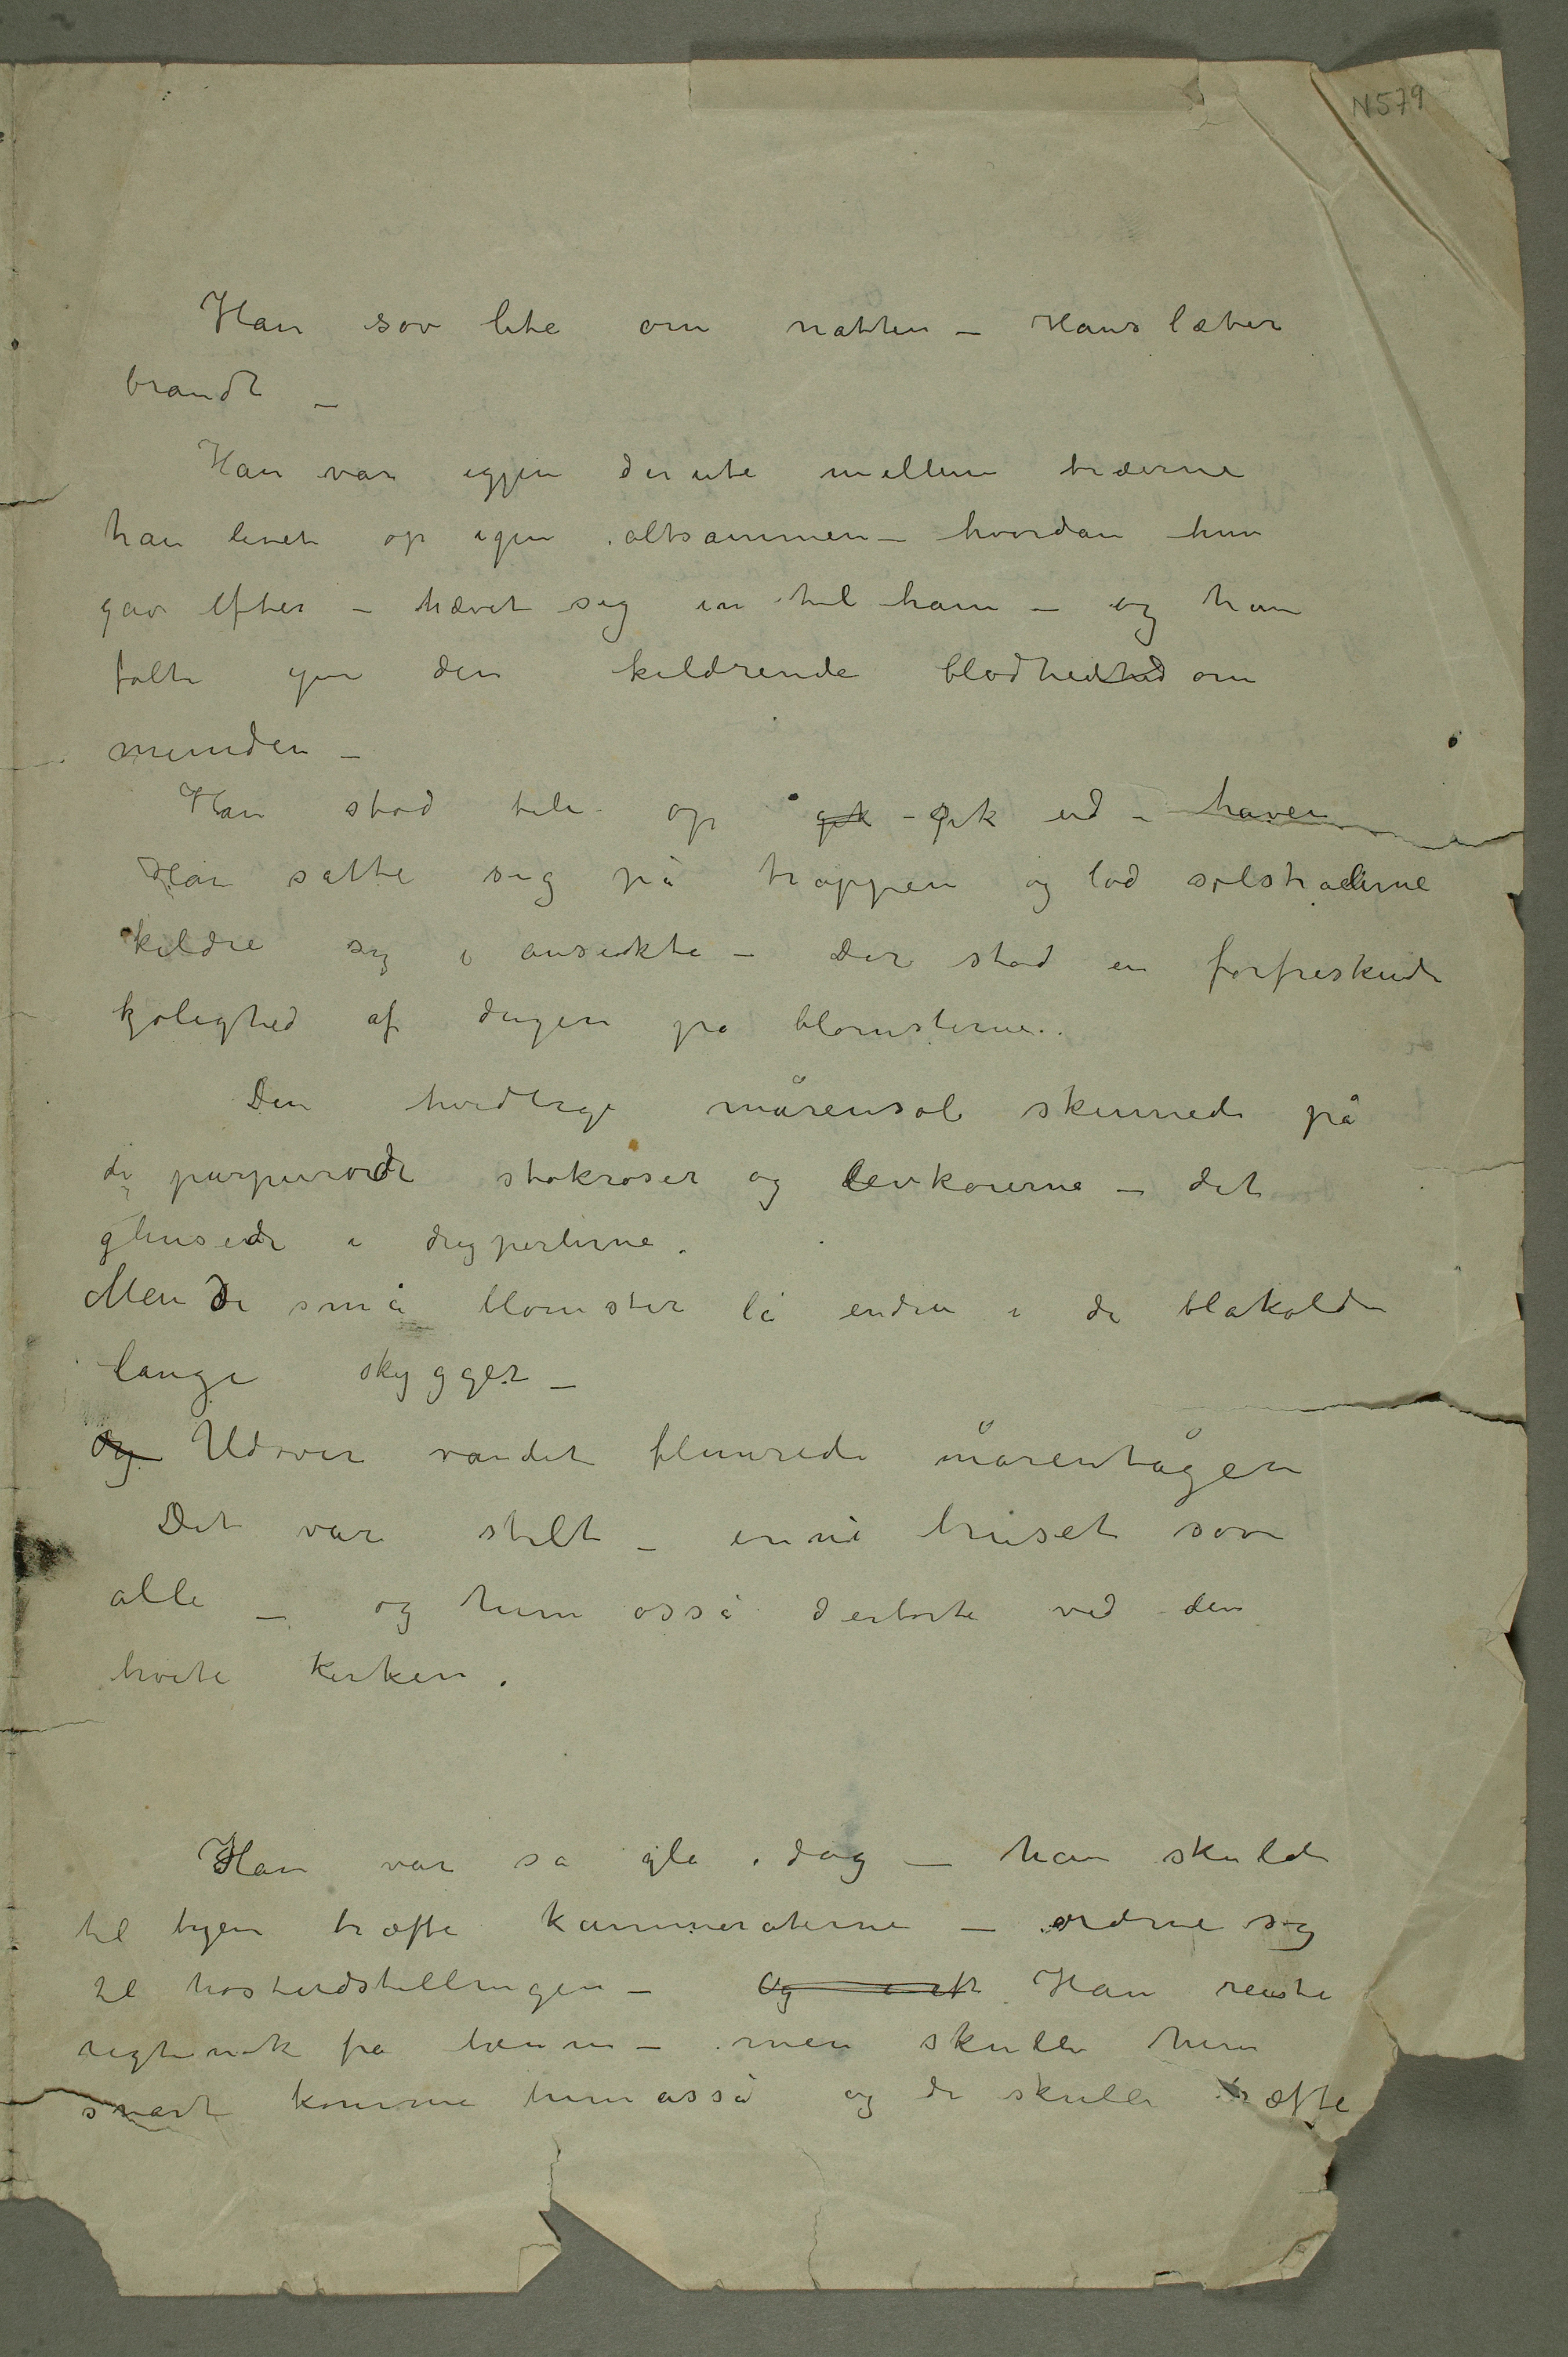 N 579
Han sov lite om natten – Hans læber
brandt –
Han var igjen derute mellem træerne
han levet op igen altsammen – hvordan hun
gav efter – hævet sig in til ham – og han
følte den kildrende blødhed om
munden –
Han stod tile op gik – gik ud i haven
Han satte sig på trappen og lod solstralerne
kildre sig i ansickte – Der stod en forfriskende
kjølighed af dugen pa blomsterne.
Den hvidlige mårensol skinnede på
de purpurøde stokroser og levkoierne – det
glinsede i dugperlerne.
Men de små blomster lå endnu i de blakolde
lange skygger –
Og Udover vandet flimrede mårentågen
Det var stilt – inni huset sov
alle – og hun osså derborte ved den
hvite kirken.
Han var sa gla idag – han skulde
til byen træffe kammeraterne – ordne sig
til høstudstillingen – Og Han reiste
rigtinok fra henne – men skulle hun
snart komme hun osså og de skulle træffe